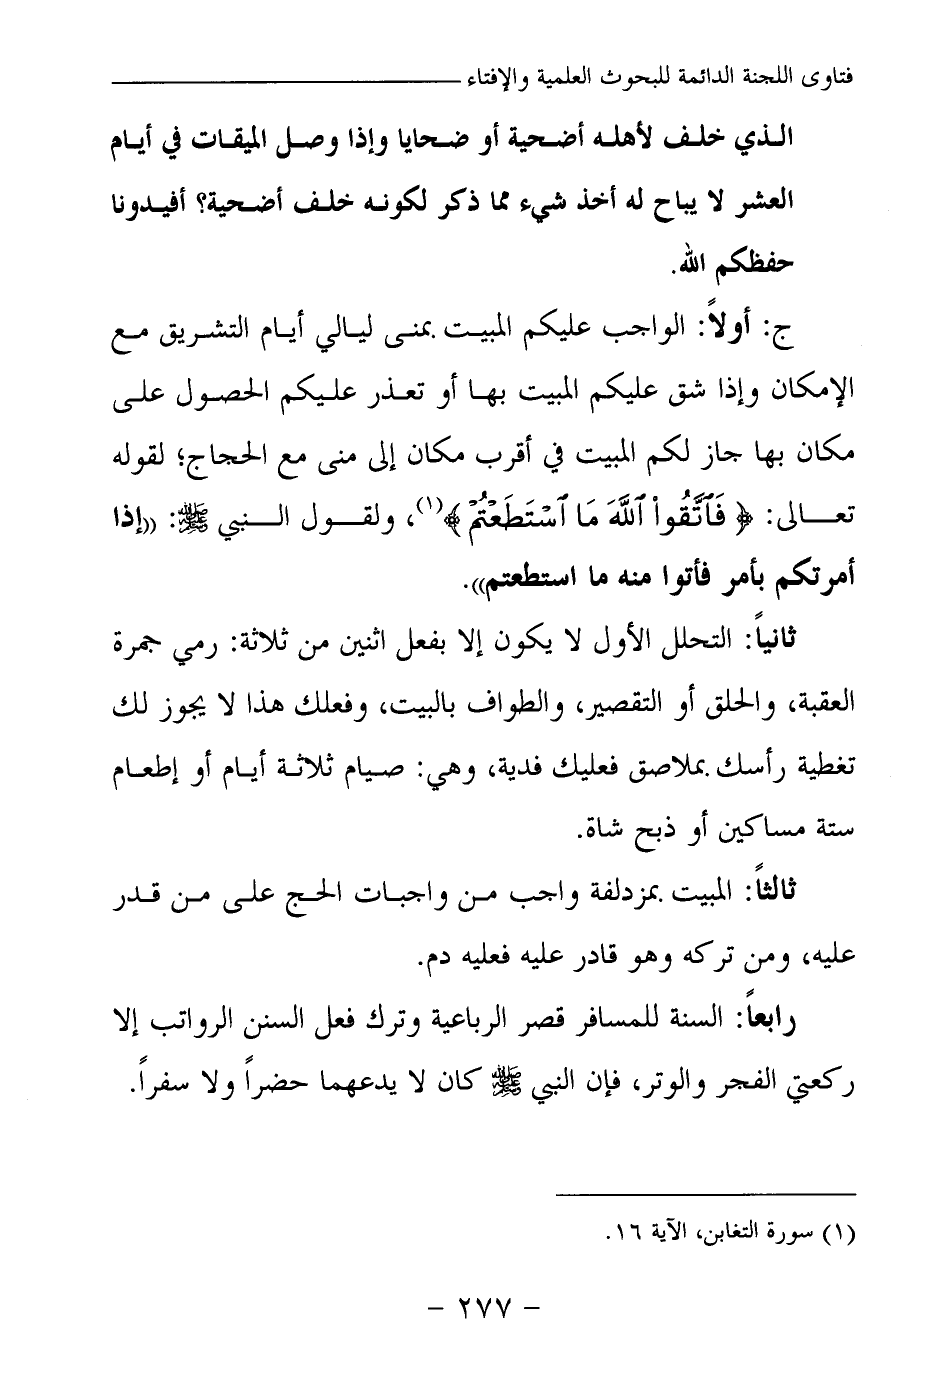 فتاوى اللجنة الدائمة للبحوث العلمية والإفتاء
الذي خلف لأهله أضحية أو ضحايا وإذا وصل الميقات في أيام
العشر لا يباح له أخذ شيء مما ذكر لكونه خلف أضحية؟ أفيدونا
حفظكم الله.
ج: أولاً: الواجب عليكم المبيت بمنى ليالي أيام التشريق مع
الإمكان وإذا شق عليكم المبيت بها أو تعذر عليكم الحصول على
مكان بها جاز لكم المبيت في أقرب مكان إلى منى مع الحجاج؛ لقوله
تعالى: ﴿ فَٱتَّقُوا۟ ٱللَّهَ مَا ٱسْتَطَعْتُمْ ﴾(١)، ولقول النبي ﷺ: ((إذا
أمرتكم بأمر فأتوا منه ما استطعتم)).
ثانياً: التحلل الأول لا يكون إلا بفعل اثنين من ثلاثة: رمي جمرة
العقبة، والحلق أو التقصير، والطواف بالبيت، وفعلك هذا لا يجوز لك
تغطية رأسك بملاصق فعليك فدية، وهي: صيام ثلاثة أيام أو إطعام
ستة مساكين أو ذبح شاة.
ثالثاً: المبيت بمزدلفة واجب من واجبات الحج على من قدر
عليه، ومن تركه وهو قادر عليه فعليه دم.
رابعاً: السنة للمسافر قصر الرباعية وترك فعل السنن الرواتب إلا
ركعتي الفجر والوتر، فإن النبي ﷺ كان لا يدعهما حضراً ولا سفراً.
(١) سورة التغابن، الآية ١٦.
- ٢٧٧ -